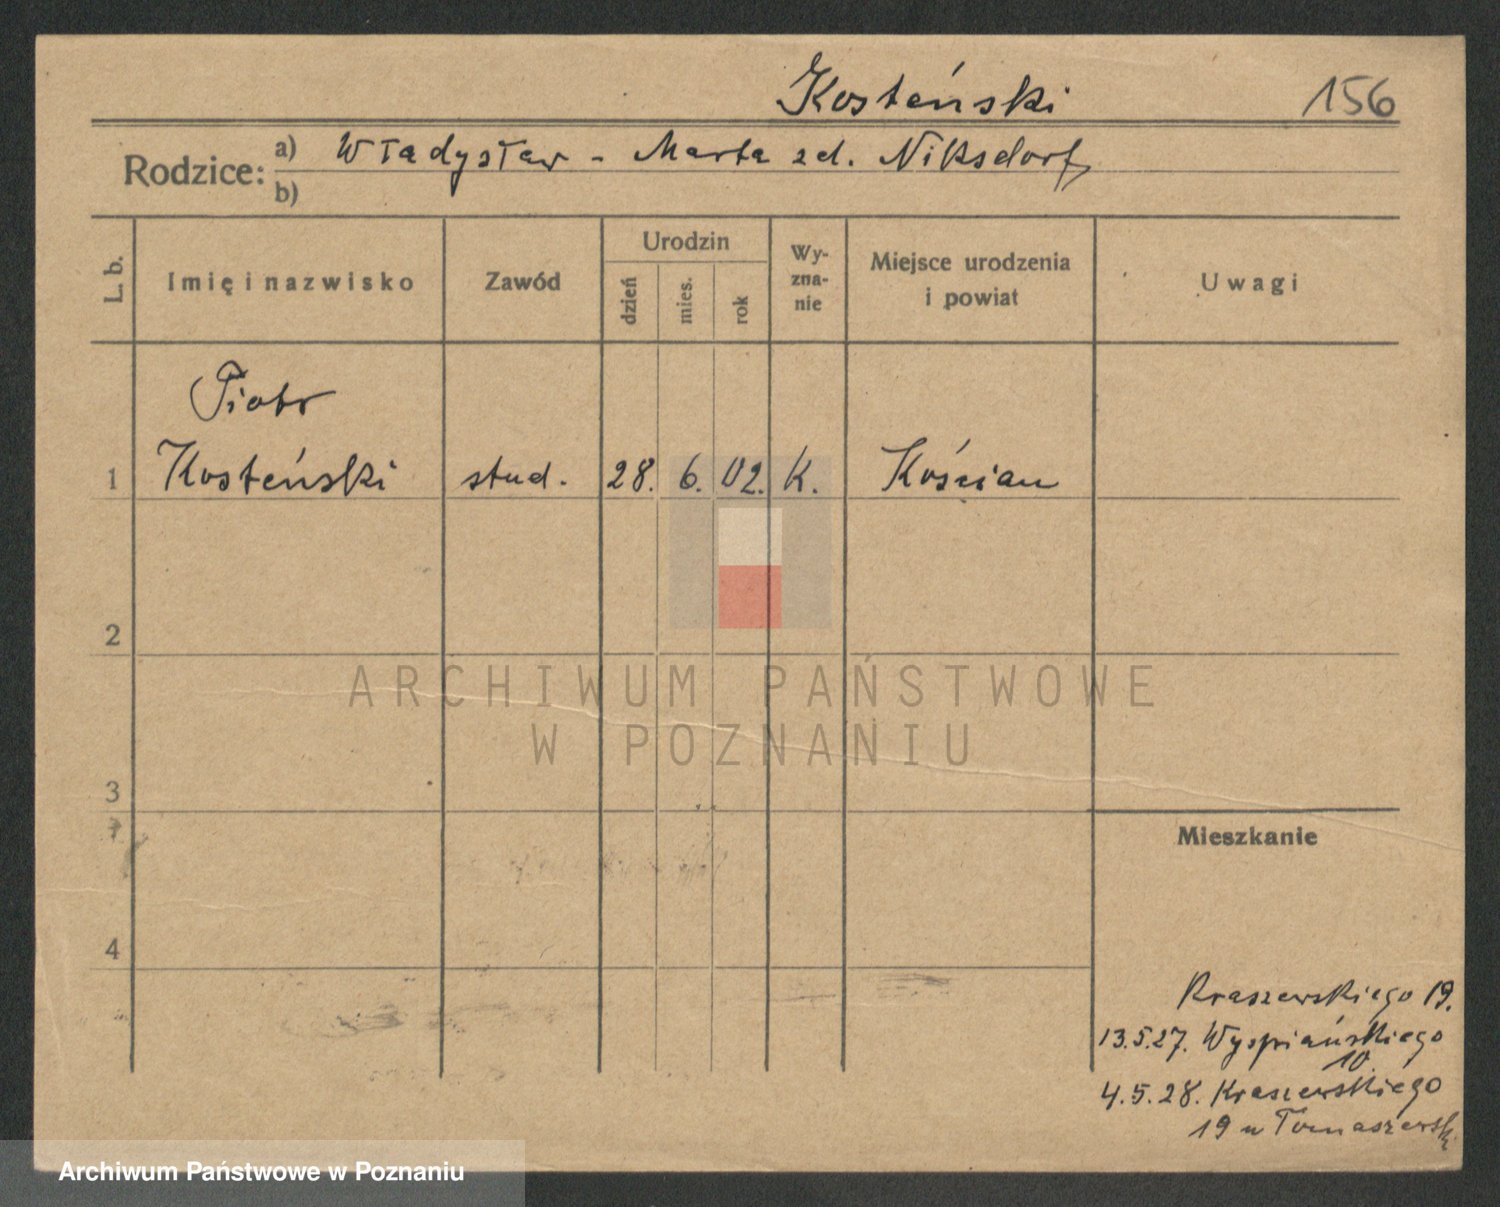 Kosteński 156
Rodzice: a) Władysław - Marta zd. Niksdorf
b)
L. b. Imię i nazwisko Zawód Urodzin dzień mies. rok Wy-zna-nie Miejsce urodzenia i powiat Uwagi
Piotr
1 Kosteński stud. 28. 6. 02. K. Kościan
2
ARCHIWUM PAŃSTWOWE
W POZNANIU
3
Mieszkanie
4
Kraszewskiego 19.
13.5.27. Wyspiańskiego
10.
4.5.28. Kraszewskiego
19 u Tomaszewski
Archiwum Państwowe w Poznaniu